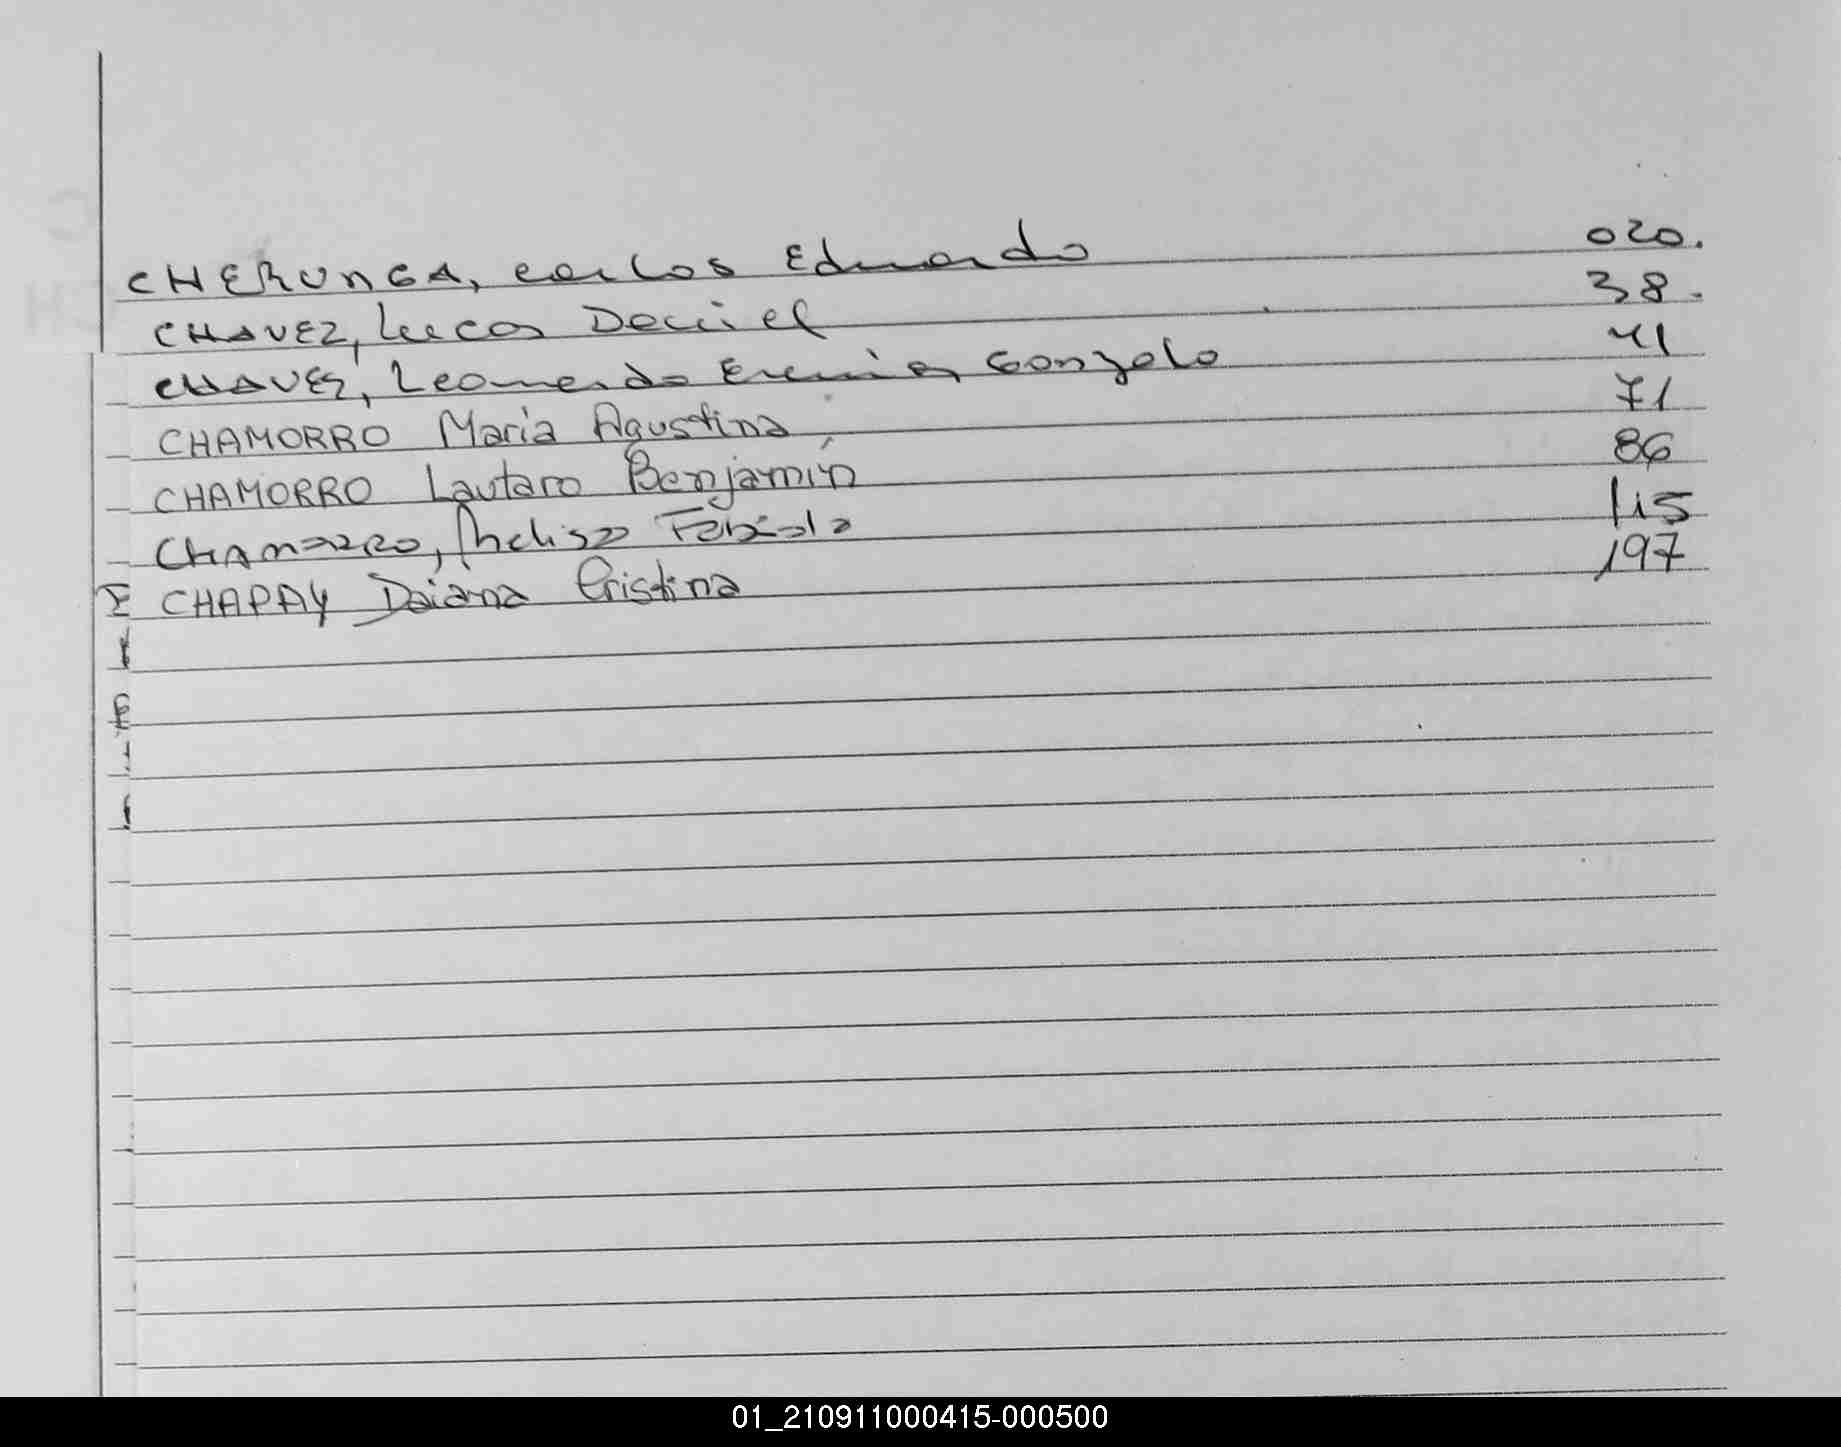 CHERUNGA, Carlos Eduardo 020.
CHAVEZ, Lucas Daniel 38.
CHAVEZ, Leonardo Gonzalo 41
CHAMORRO Maria Agustina 71
CHAMORRO Lautaro Benjamín 86
CHAMORRO, Melisa Fabiola 115
CHAPAY Daiana Cristina 197
01_210911000415-000500